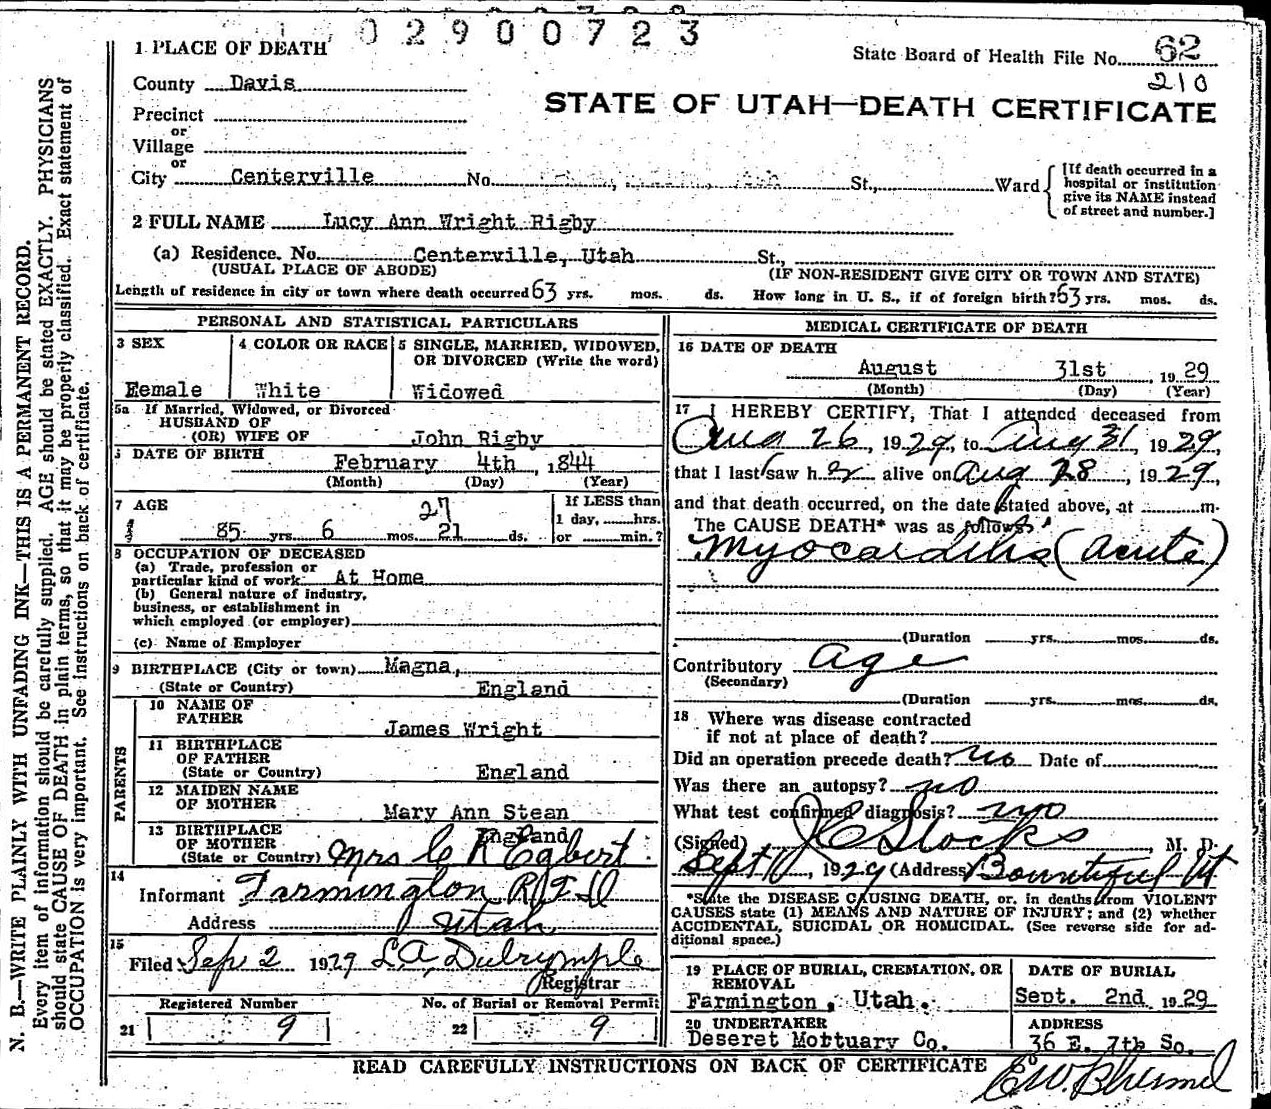 02900723
1 PLACE OF DEATH
State Board of Health File No. 62
210
County Davis
STATE OF UTAH—DEATH CERTIFICATE
Precinct
or
Village
or
City Centerville No. St., Ward
[If death occurred in a
hospital or institution
give its NAME instead
of street and number.]
2 FULL NAME Lucy Ann Wright Rigby
(a) Residence. No. Centerville, Utah St.,
(USUAL PLACE OF ABODE) (IF NON-RESIDENT GIVE CITY OR TOWN AND STATE)
Length of residence in city or town where death occurred 63 yrs. mos. ds. How long in U. S., if of foreign birth? 63 yrs. mos. ds.
PERSONAL AND STATISTICAL PARTICULARS
3 SEX
Female
4 COLOR OR RACE
White
5 SINGLE, MARRIED, WIDOWED,
OR DIVORCED (Write the word)
Widowed
5a If Married, Widowed, or Divorced
HUSBAND OF
(OR) WIFE OF John Rigby
6 DATE OF BIRTH
February 4th, 1844
(Month) (Day) (Year)
7 AGE
27
85 yrs. 6 mos. 21 ds.
If LESS than
1 day, hrs.
or min.?
8 OCCUPATION OF DECEASED
(a) Trade, profession or
particular kind of work At Home
(b) General nature of industry,
business, or establishment in
which employed (or employer)
(c) Name of Employer
9 BIRTHPLACE (City or town) Magna,
(State or Country) England
PARENTS
10 NAME OF
FATHER James Wright
11 BIRTHPLACE
OF FATHER
(State or Country) England
12 MAIDEN NAME
OF MOTHER Mary Ann Stean
13 BIRTHPLACE
OF MOTHER England
(State or Country)
14 Mrs C R Egbert
Informant Farmington R F D
Address Utah
15
Filed Sep 2 1929 L.A. Dalrymple
Registrar
Registered Number
21 9
No. of Burial or Removal Permit
22 9
MEDICAL CERTIFICATE OF DEATH
16 DATE OF DEATH
August 31st, 1929
(Month) (Day) (Year)
17 I HEREBY CERTIFY, That I attended deceased from
Aug 26, 1929, to Aug 31, 1929,
that I last saw her alive on Aug 28, 1929,
and that death occurred, on the date stated above, at m.
The CAUSE DEATH* was as follows:
Myocarditis (acute)
(Duration yrs. mos. ds.
Contributory Age
(Secondary)
(Duration yrs. mos. ds.
18 Where was disease contracted
if not at place of death?
Did an operation precede death? no Date of
Was there an autopsy? no
What test confirmed diagnosis? no
(Signed) J C Stocks, M. D.
Sept 1, 1929 (Address) Bountiful Ut
*State the DISEASE CAUSING DEATH, or, in deaths from VIOLENT
CAUSES state (1) MEANS AND NATURE OF INJURY; and (2) whether
ACCIDENTAL, SUICIDAL OR HOMICIDAL. (See reverse side for ad-
ditional space.)
19 PLACE OF BURIAL, CREMATION, OR
REMOVAL
Farmington, Utah.
DATE OF BURIAL
Sept. 2nd 1929
20 UNDERTAKER
Deseret Mottuary Co.
ADDRESS
36 E. 7th So.
READ CAREFULLY INSTRUCTIONS ON BACK OF CERTIFICATE
N. B.—WRITE PLAINLY WITH UNFADING INK—THIS IS A PERMANENT RECORD.
Every item of information should be carefully supplied. AGE should be stated EXACTLY. PHYSICIANS
should state CAUSE OF DEATH in plain terms, so that it may be properly classified. Exact statement of
OCCUPATION is very important. See instructions on back of certificate.